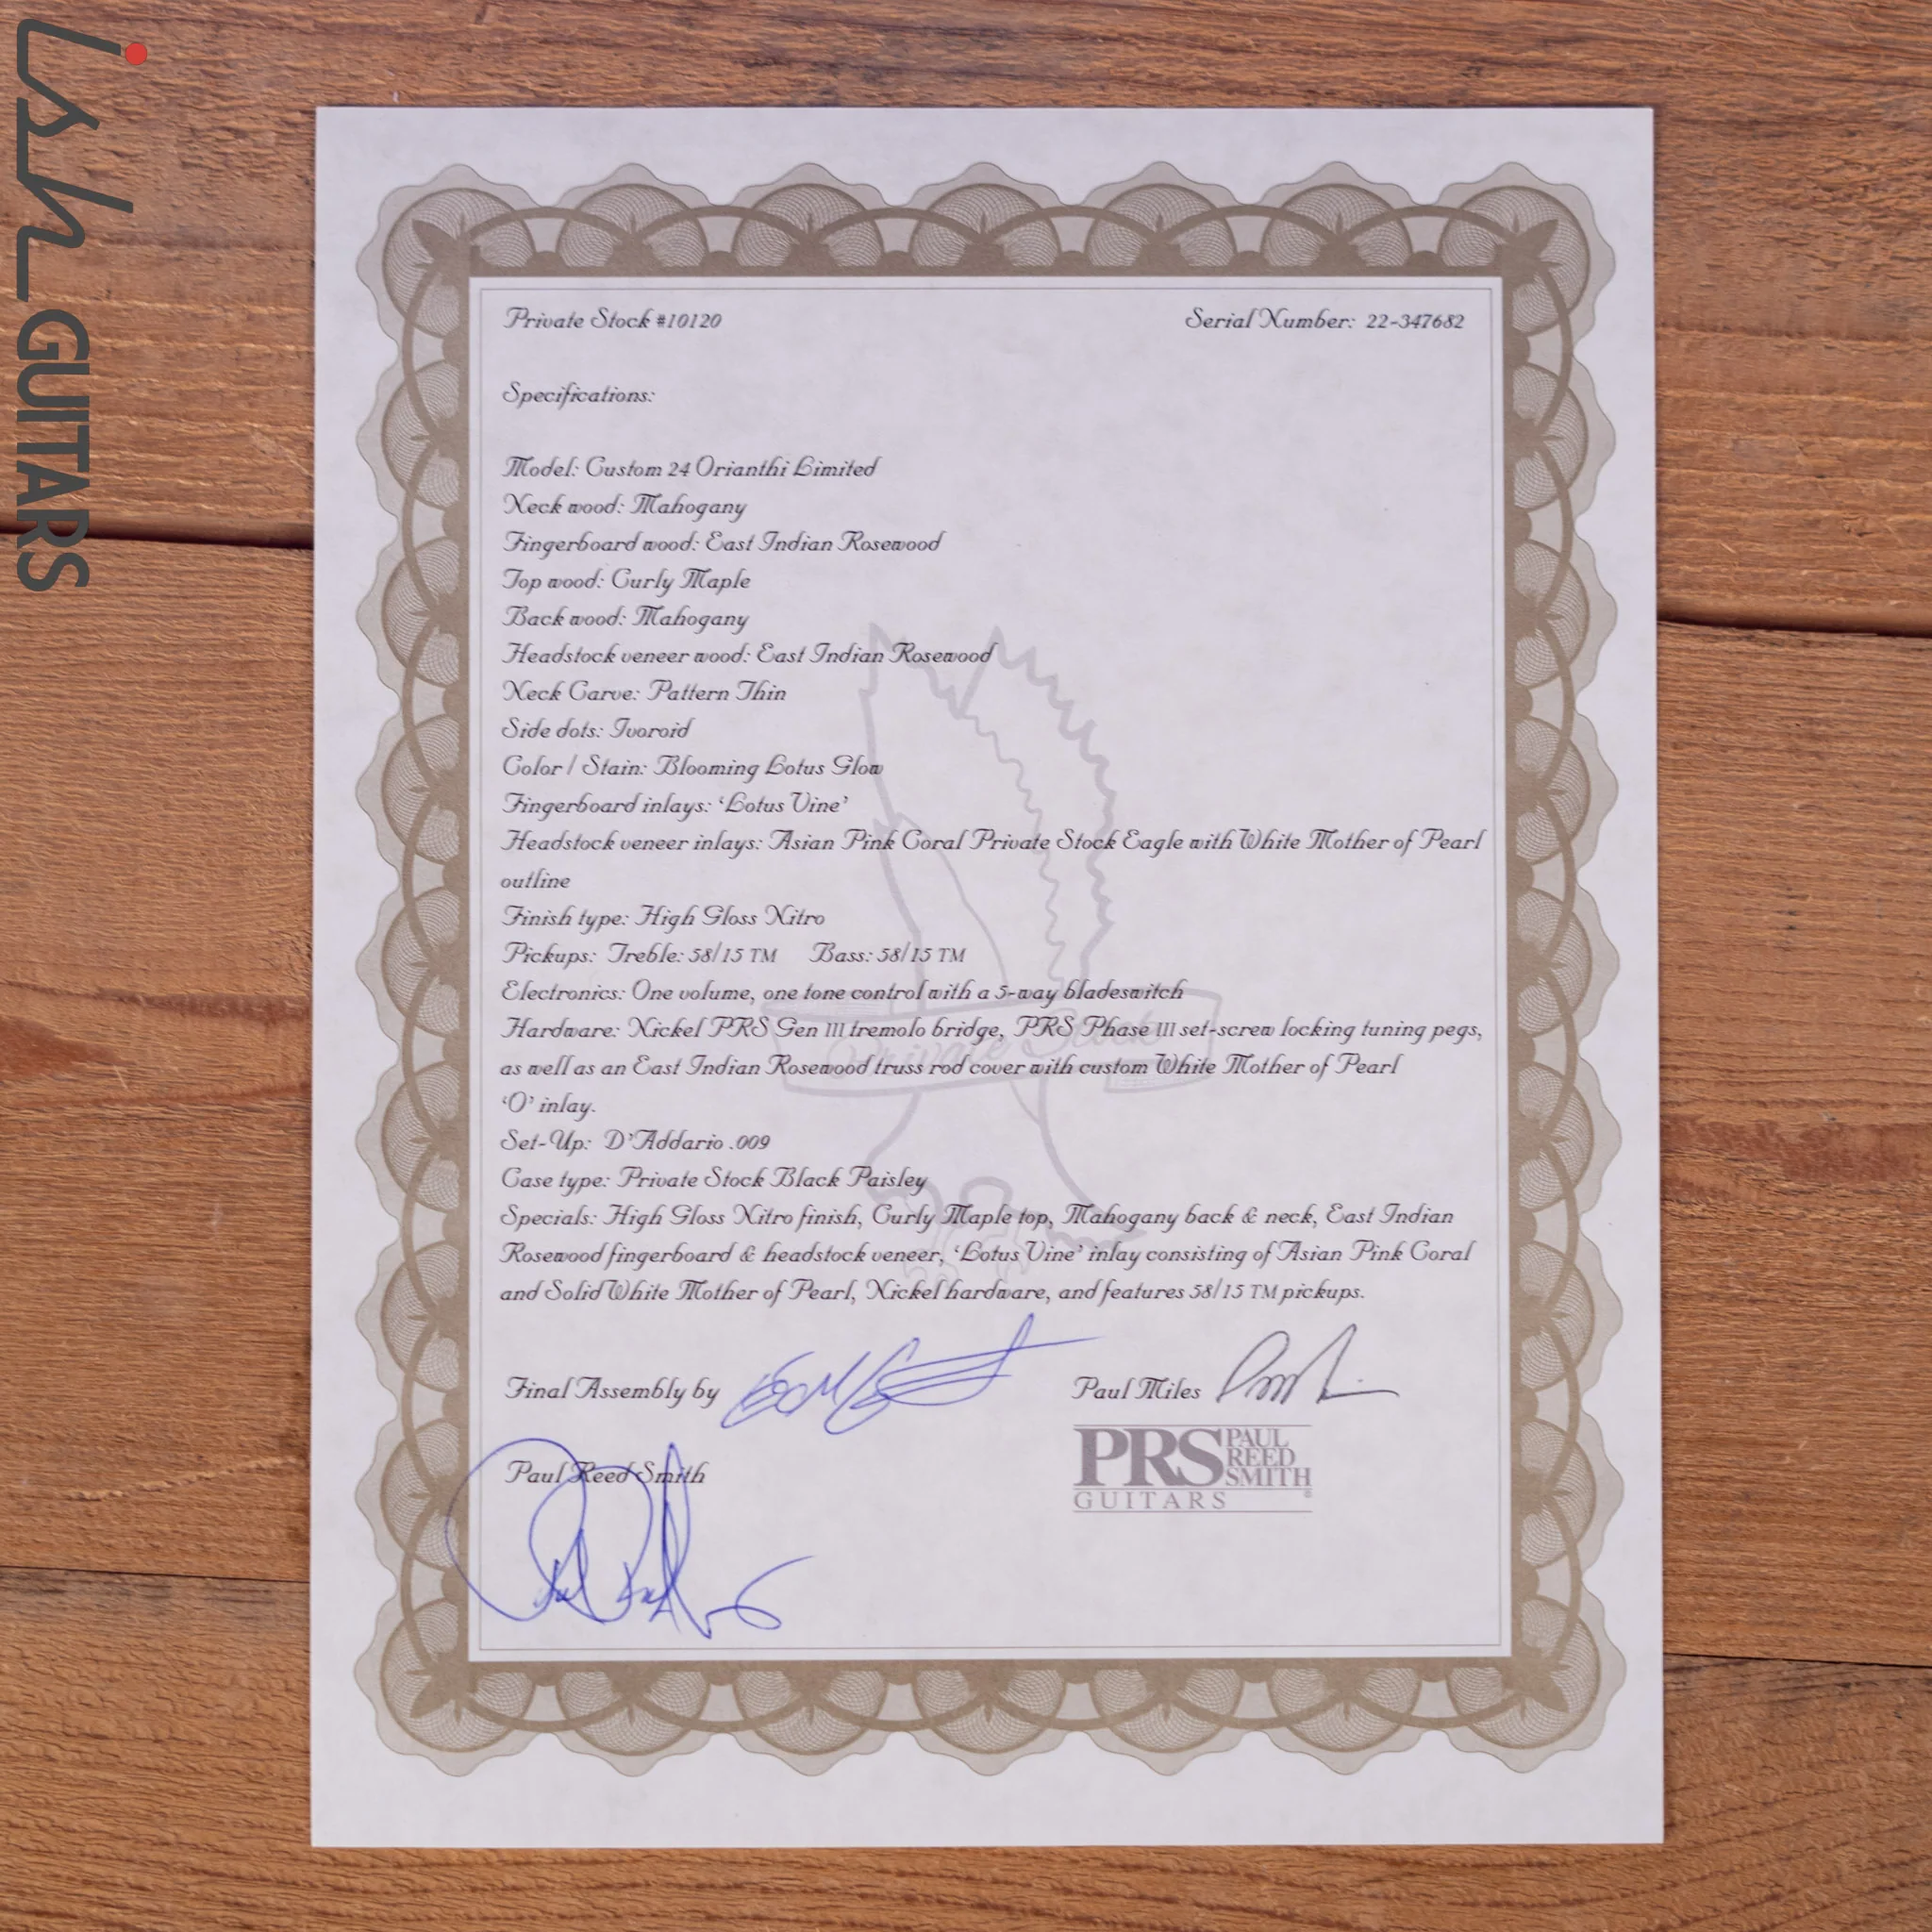 ish GUITARS
Private Stock #10120
Serial Number: 22-347682
Specifications:
Model: Custom 24 Orianthi Limited
Neck wood: Mahogany
Fingerboard wood: East Indian Rosewood
Top wood: Curly Maple
Back wood: Mahogany
Headstock veneer wood: East Indian Rosewood
Neck Carve: Pattern Thin
Side dots: Ivoroid
Color / Stain: Blooming Lotus Glow
Fingerboard inlays: ‘Lotus Vine’
Headstock veneer inlays: Asian Pink Coral Private Stock Eagle with White Mother of Pearl
outline
Finish type: High Gloss Nitro
Pickups: Treble: 58/15 TM Bass: 58/15 TM
Electronics: One volume, one tone control with a 5-way bladeswitch
Hardware: Nickel PRS Gen III tremolo bridge, PRS Phase III set-screw locking tuning pegs,
as well as an East Indian Rosewood truss rod cover with custom White Mother of Pearl
‘O’ inlay.
Set-Up: D’Addario .009
Case type: Private Stock Black Paisley
Specials: High Gloss Nitro finish, Curly Maple top, Mahogany back & neck, East Indian
Rosewood fingerboard & headstock veneer, ‘Lotus Vine’ inlay consisting of Asian Pink Coral
and Solid White Mother of Pearl, Nickel hardware, and features 58/15 TM pickups.
Private Stock
Final Assembly by
Paul Miles
Paul Reed Smith
PRS PAUL REED SMITH
GUITARS